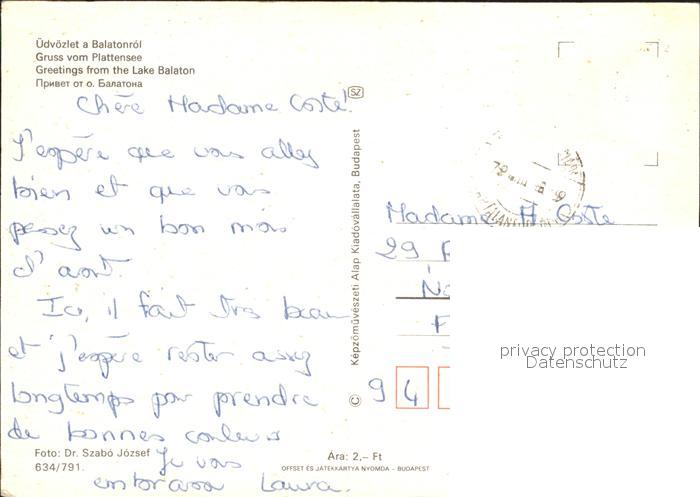 Üdvözlet a Balatonról
Gruss vom Plattensee
Greetings from the Lake Balaton
Привет от о. Балатона
Chère Madame Coste!
J'espère que vous allez
bien et que vous
passez un bon mois
d'août.
Ici, il fait très beau
et j'espère rester assez
longtemps pour prendre
de bonnes couleurs
Je vous
embrasse Laura.
Foto: Dr. Szabó József
634/791.
Ára: 2,– Ft
OFFSET ÉS JÁTÉKKÁRTYA NYOMDA – BUDAPEST
© Képzőművészeti Alap Kiadóvállalata, Budapest
SZ
Madame A. Coste
29
94
privacy protection
Datenschutz